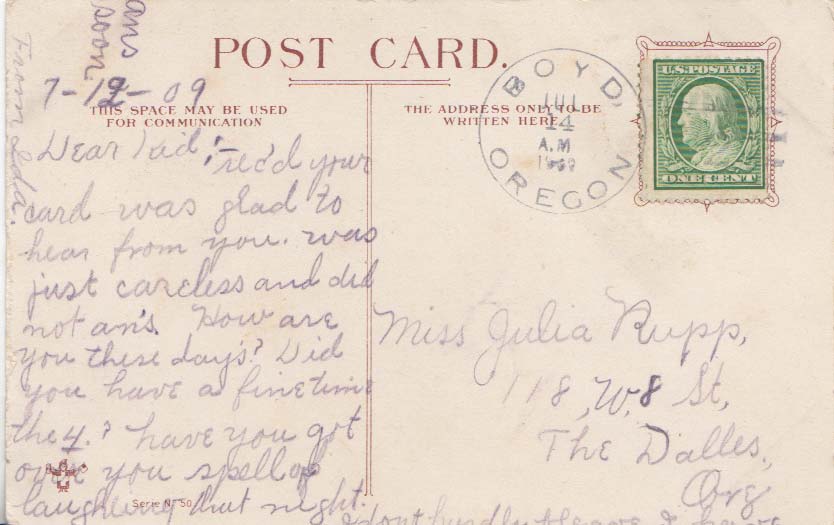 POST CARD.
THIS SPACE MAY BE USED
FOR COMMUNICATION
THE ADDRESS ONLY TO BE
WRITTEN HERE
BOYD,
JUL
14
A.M
1909
OREGON
U.S. POSTAGE
ONE CENT
ans
soon
From Ida.
7-12-09
Dear Kid! rec'd your
card was glad to
hear from you. was
just careless and did
not ans. How are
you these days? Did
you have a fine time
the 4.? have you got
over you spell of
laughing that night.
I dont hardly
Miss Julia Rupp,
118, W, 8 St,
The Dalles,
Org
Serie No 50